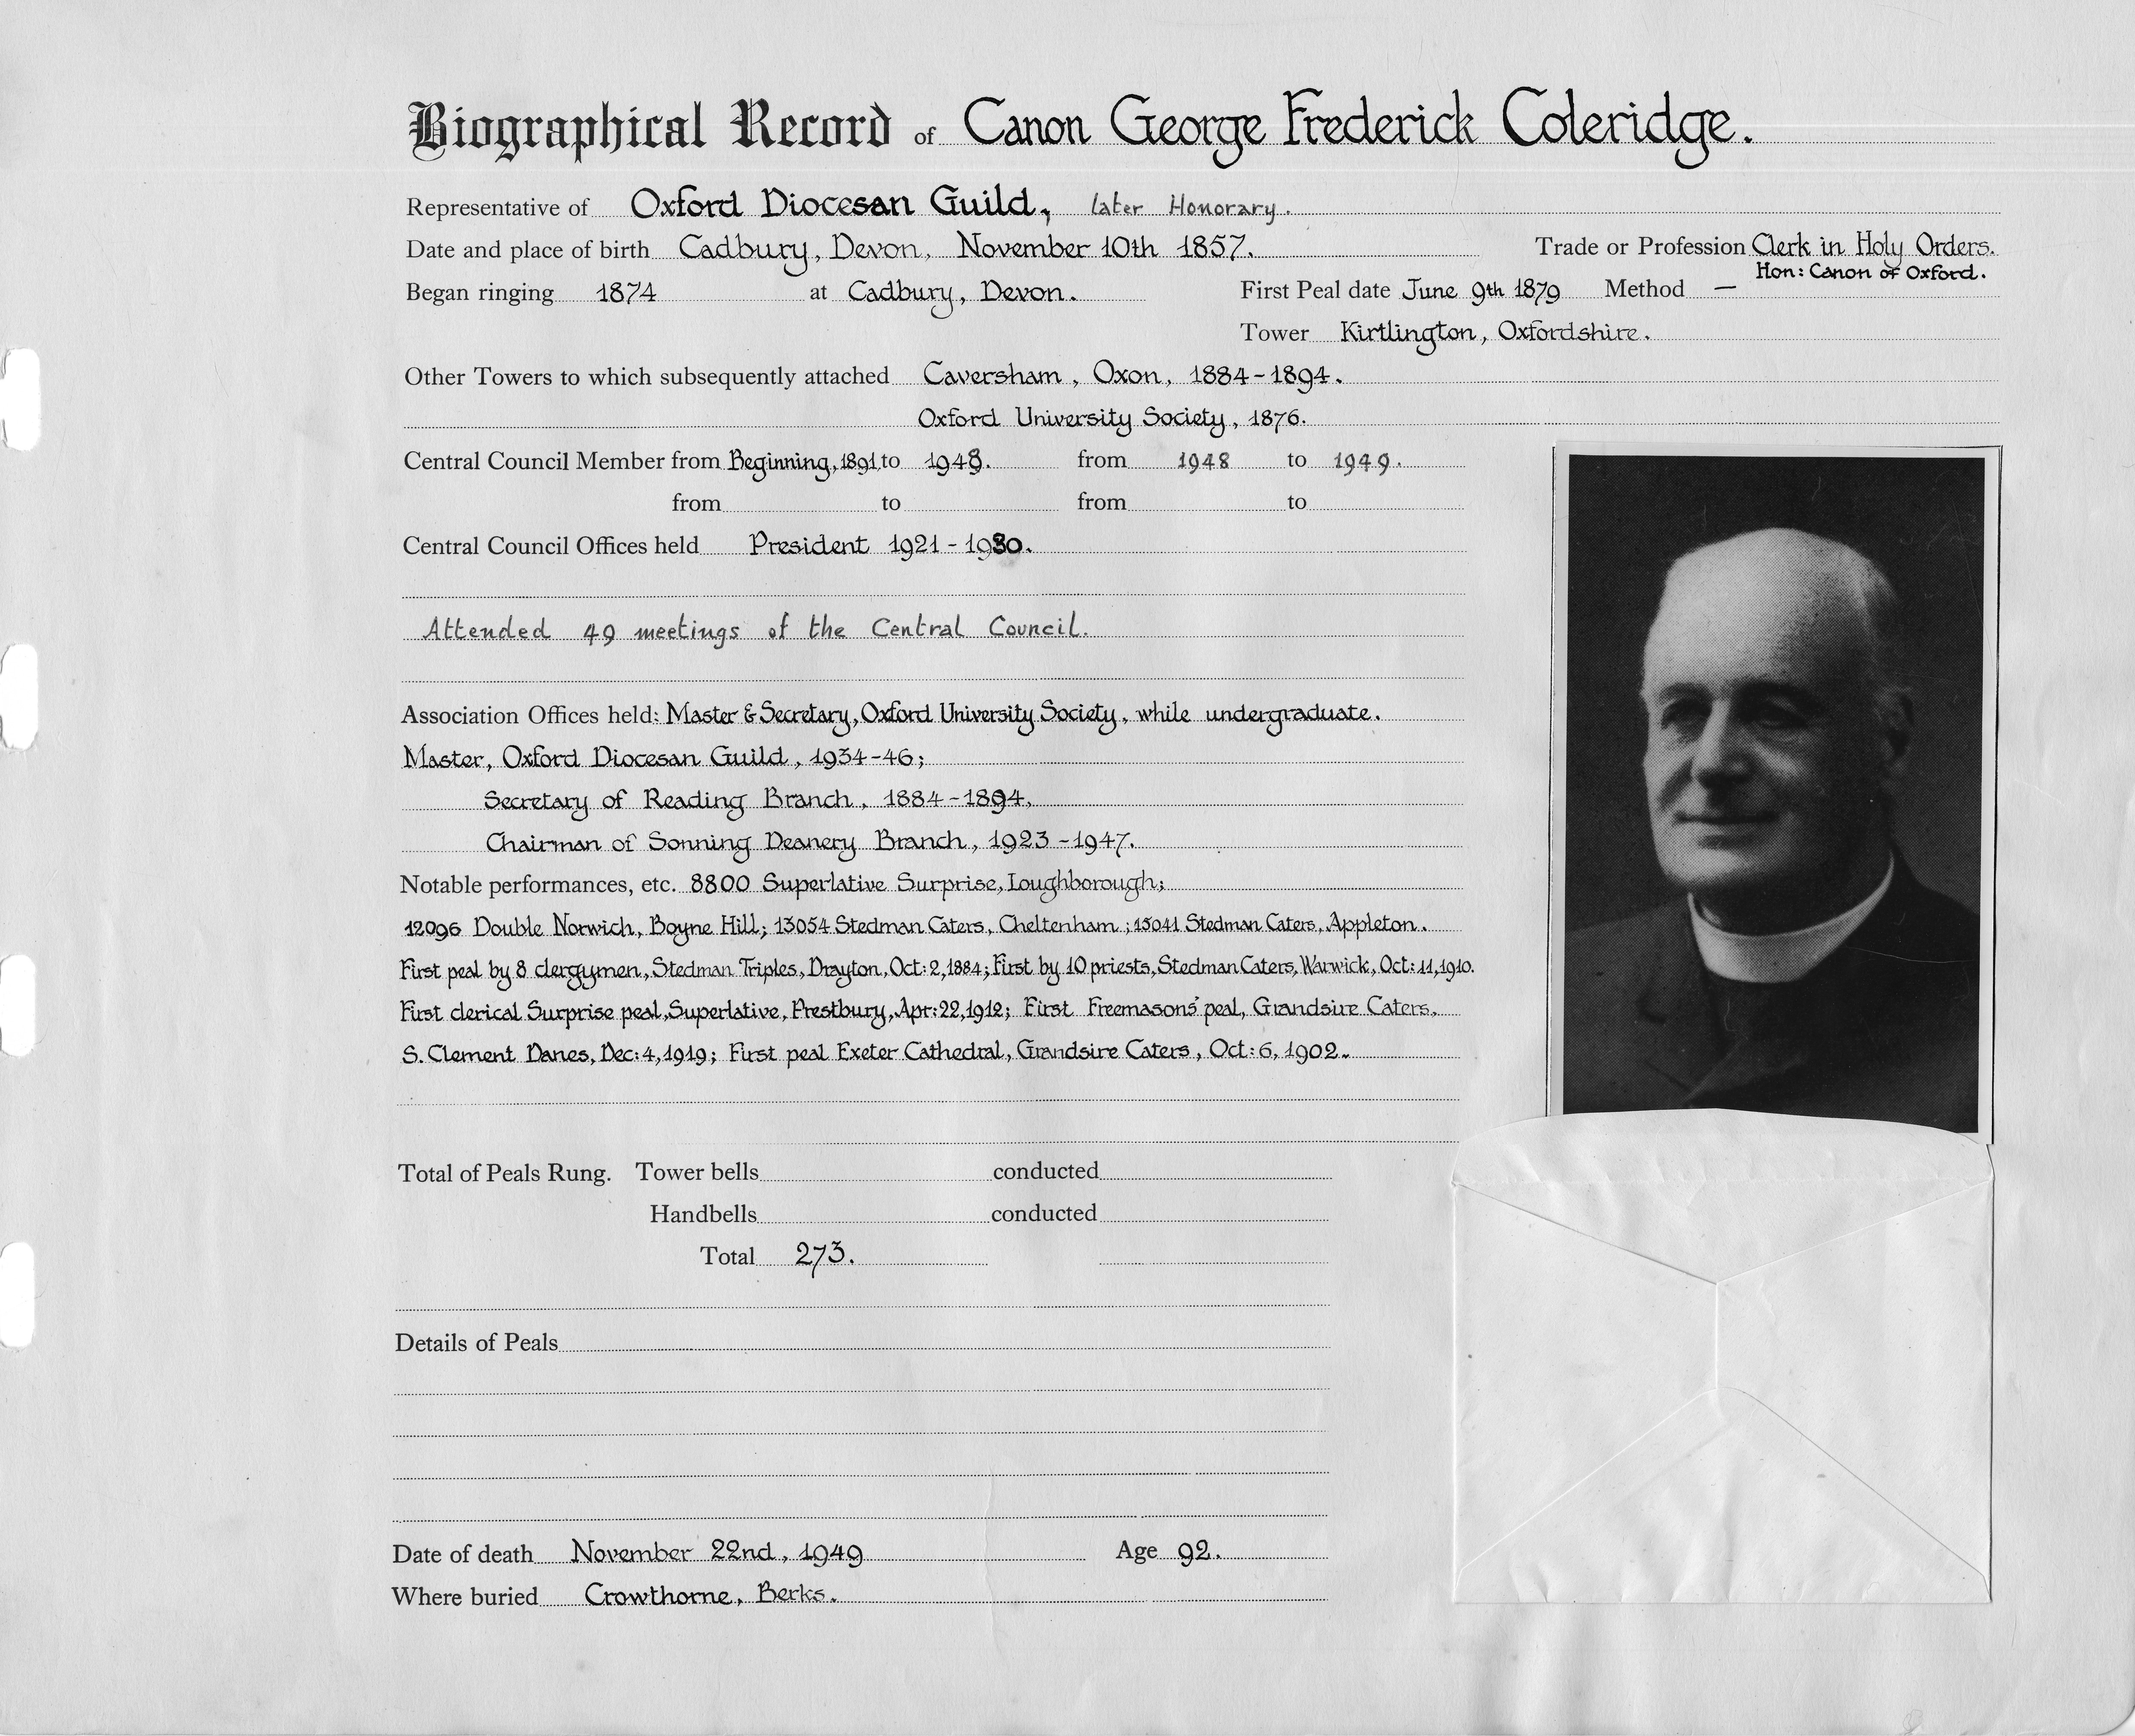 Biographical Record of Canon George Frederick Coleridge.
Representative of Oxford Diocesan Guild, later Honorary.
Date and place of birth Cadbury, Devon, November 10th 1857. Trade or Profession Clerk in Holy Orders.
Hon: Canon of Oxford.
Began ringing 1874 at Cadbury, Devon. First Peal date June 9th 1879 Method —
Tower Kirtlington, Oxfordshire.
Other Towers to which subsequently attached Caversham, Oxon, 1884-1894.
Oxford University Society, 1876.
Central Council Member from Beginning, 1891, to 1948. from 1948 to 1949.
from to from to
Central Council Offices held President 1921-1930.
Attended 49 meetings of the Central Council.
Association Offices held: Master & Secretary, Oxford University Society, while undergraduate.
Master, Oxford Diocesan Guild, 1934-46;
Secretary of Reading Branch, 1884-1894,
Chairman of Sonning Deanery Branch, 1923-1947.
Notable performances, etc. 8800 Superlative Surprise, Loughborough;
12096 Double Norwich, Boyne Hill; 13054 Stedman Caters, Cheltenham; 15041 Stedman Caters, Appleton.
First peal by 8 clergymen, Stedman Triples, Drayton, Oct: 2, 1884; First by 10 priests, Stedman Caters, Warwick, Oct: 11, 1910.
First clerical Surprise peal, Superlative, Prestbury, Apr: 22, 1912; First Freemasons' peal, Grandsire Caters,
S. Clement Danes, Dec: 4, 1919; First peal Exeter Cathedral, Grandsire Caters, Oct: 6, 1902.
Total of Peals Rung. Tower bells conducted
Handbells conducted
Total 273.
Details of Peals
Date of death November 22nd, 1949 Age 92.
Where buried Crowthorne, Berks.